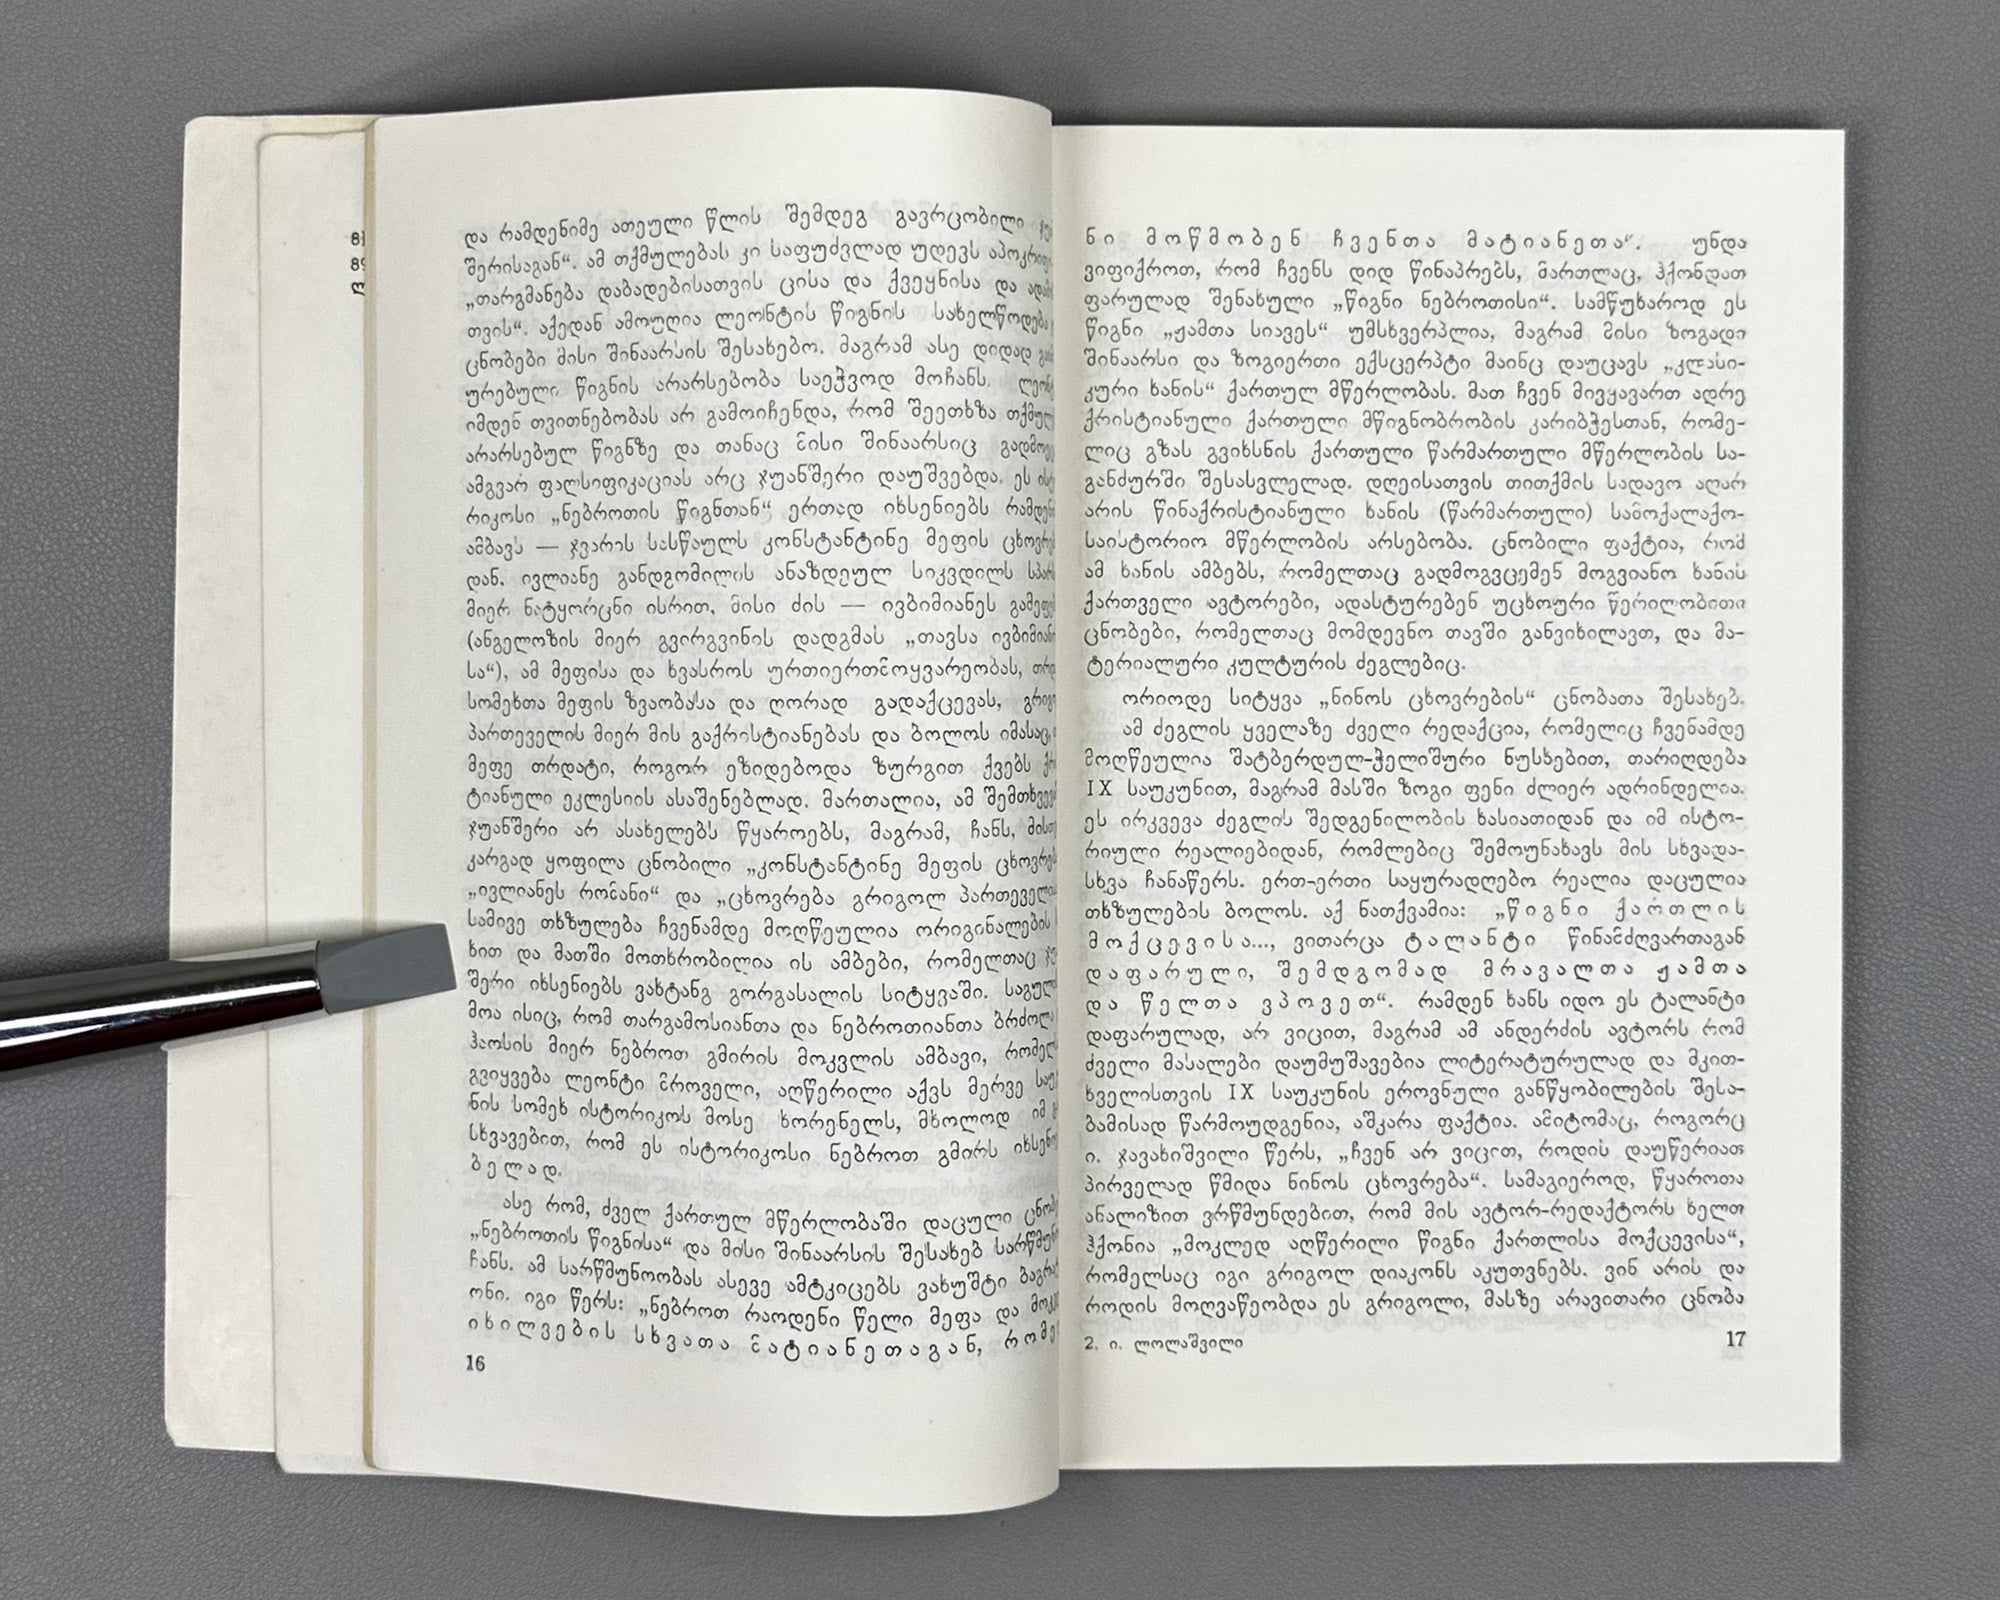 და რამდენიმე ათეული წლის შემდეგ გავრცობილი
შერისაგან“. ამ თქმულებას კი საფუძვლად უდევს
„თარგმანება დაბადებისათვის ცისა და ქვეყნისა და
თვის“. აქედან ამოუღია ლეონტის წიგნის სახელწოდება
ცნობები მისი შინაარსის შესახებო. მაგრამ ასე დიდად
ურებული წიგნის არარსებობა საეჭვოდ მოჩანს.
იმდენ თვითნებობას არ გამოიჩენდა, რომ შეეთხზა
არარსებულ წიგნზე და თანაც მისი შინაარსიც
ამგვარ ფალსიფიკაციას არც ჯუანშერი დაუშვებდა. ეს
რიკოსი „ნებროთის წიგნთან“ ერთად იხსენიებს
ამბავს — ჯვარის სასწაულს კონსტანტინე მეფის
დან. ივლიანე განდგომილის ანაზდეულ სიკვდილს
მიერ ნატყორცნი ისრით, მისი ძის — ივბიმიანეს
(ანგელოზის მიერ გვირგვინის დადგმას „თავსა
სა“), ამ მეფისა და ხვასროს ურთიერთმოყვარეობას,
სომეხთა მეფის ზვაობასა და ღორად გადაქცევას,
პართეველის მიერ მის გაქრისტიანებას და ბოლოს იმასაც,
მეფე თრდატი, როგორ ეზიდებოდა ზურგით ქვებს
ტიანული ეკლესიის ასაშენებლად. მართალია, ამ
ჯუანშერი არ ასახელებს წყაროებს, მაგრამ, ჩანს,
კარგად ყოფილა ცნობილი „კონსტანტინე მეფის
„ივლიანეს რომანი“ და „ცხოვრება გრიგოლ
სამივე თხზულება ჩვენამდე მოღწეულია ორიგინალების
ხით და მათში მოთხრობილია ის ამბები, რომელთაც
შერი იხსენიებს ვახტანგ გორგასალის სიტყვაში.
მოა ისიც, რომ თარგამოსიანთა და ნებროთიანთა
ჰაოსის მიერ ნებროთ გმირის მოკვლის ამბავი,
გვიყვება ლეონტი მროველი, აღწერილი აქვს მერვე
ნის სომეხ ისტორიკოს მოსე ხორენელს, მხოლოდ იმ
სხვავებით, რომ ეს ისტორიკოსი ნებროთ გმირს
ბელად.
ასე რომ, ძველ ქართულ მწერლობაში დაცული
„ნებროთის წიგნისა“ და მისი შინაარსის შესახებ
ჩანს. ამ სარწმუნოობას ასევე ამტკიცებს ვახუშტი
ონი. იგი წერს: „ნებროთ რაოდენი წელი მეფა და
იხილვების სხვათა მატიანეთაგან,
16
ნი მოწმობენ ჩვენთა მატიანეთა“. უნდა
ვიფიქროთ, რომ ჩვენს დიდ წინაპრებს, მართლაც, ჰქონდათ
ფარულად შენახული „წიგნი ნებროთისი“. სამწუხაროდ ეს
წიგნი „ჟამთა სიავეს“ უმსხვერპლია, მაგრამ მისი ზოგადი
შინაარსი და ზოგიერთი ექსცერპტი მაინც დაუცავს „კლასი-
კური ხანის“ ქართულ მწერლობას. მათ ჩვენ მივყავართ ადრე
ქრისტიანული ქართული მწიგნობრობის კარიბჭესთან, რომე-
ლიც გზას გვიხსნის ქართული წარმართული მწერლობის სა-
განძურში შესასვლელად. დღეისათვის თითქმის სადავო აღარ
არის წინაქრისტიანული ხანის (წარმართული) სამოქალაქო-
საისტორიო მწერლობის არსებობა. ცნობილი ფაქტია, რომ
ამ ხანის ამბებს, რომელთაც გადმოგვცემენ მოგვიანო ხანის
ქართველი ავტორები, ადასტურებენ უცხოური წერილობითი
ცნობები, რომელთაც მომდევნო თავში განვიხილავთ, და მა-
ტერიალური კულტურის ძეგლებიც.
ორიოდე სიტყვა „ნინოს ცხოვრების“ ცნობათა შესახებ.
ამ ძეგლის ყველაზე ძველი რედაქცია, რომელიც ჩვენამდე
მოღწეულია შატბერდულ-ჭელიშური ნუსხებით, თარიღდება
IX საუკუნით, მაგრამ მასში ზოგი ფენი ძლიერ ადრინდელია.
ეს ირკვევა ძეგლის შედგენილობის ხასიათიდან და იმ ისტო-
რიული რეალიებიდან, რომლებიც შემოუნახავს მის სხვადა-
სხვა ჩანაწერს. ერთ-ერთი საყურადღებო რეალია დაცულია
თხზულების ბოლოს. აქ ნათქვამია: „წიგნი ქართლის
მოქცევისა..., ვითარცა ტალანტი წინამძღვართაგან
დაფარული, შემდგომად მრავალთა ჟამთა
და წელთა ვპოვეთ“. რამდენ ხანს იდო ეს ტალანტი
დაფარულად, არ ვიცით, მაგრამ ამ ანდერძის ავტორს რომ
ძველი მასალები დაუმუშავებია ლიტერატურულად და მკით-
ხველისთვის IX საუკუნის ეროვნული განწყობილების შესა-
ბამისად წარმოუდგენია, აშკარა ფაქტია. ამიტომაც, როგორც
ი. ჯავახიშვილი წერს, „ჩვენ არ ვიცით, როდის დაუწერიათ
პირველად წმიდა ნინოს ცხოვრება“. სამაგიეროდ, წყაროთა
ანალიზით ვრწმუნდებით, რომ მის ავტორ-რედაქტორს ხელთ
ჰქონია „მოკლედ აღწერილი წიგნი ქართლისა მოქცევისა“,
რომელსაც იგი გრიგოლ დიაკონს აკუთვნებს. ვინ არის და
როდის მოღვაწეობდა ეს გრიგოლი, მასზე არავითარი ცნობა
2. ი. ლოლაშვილი
17